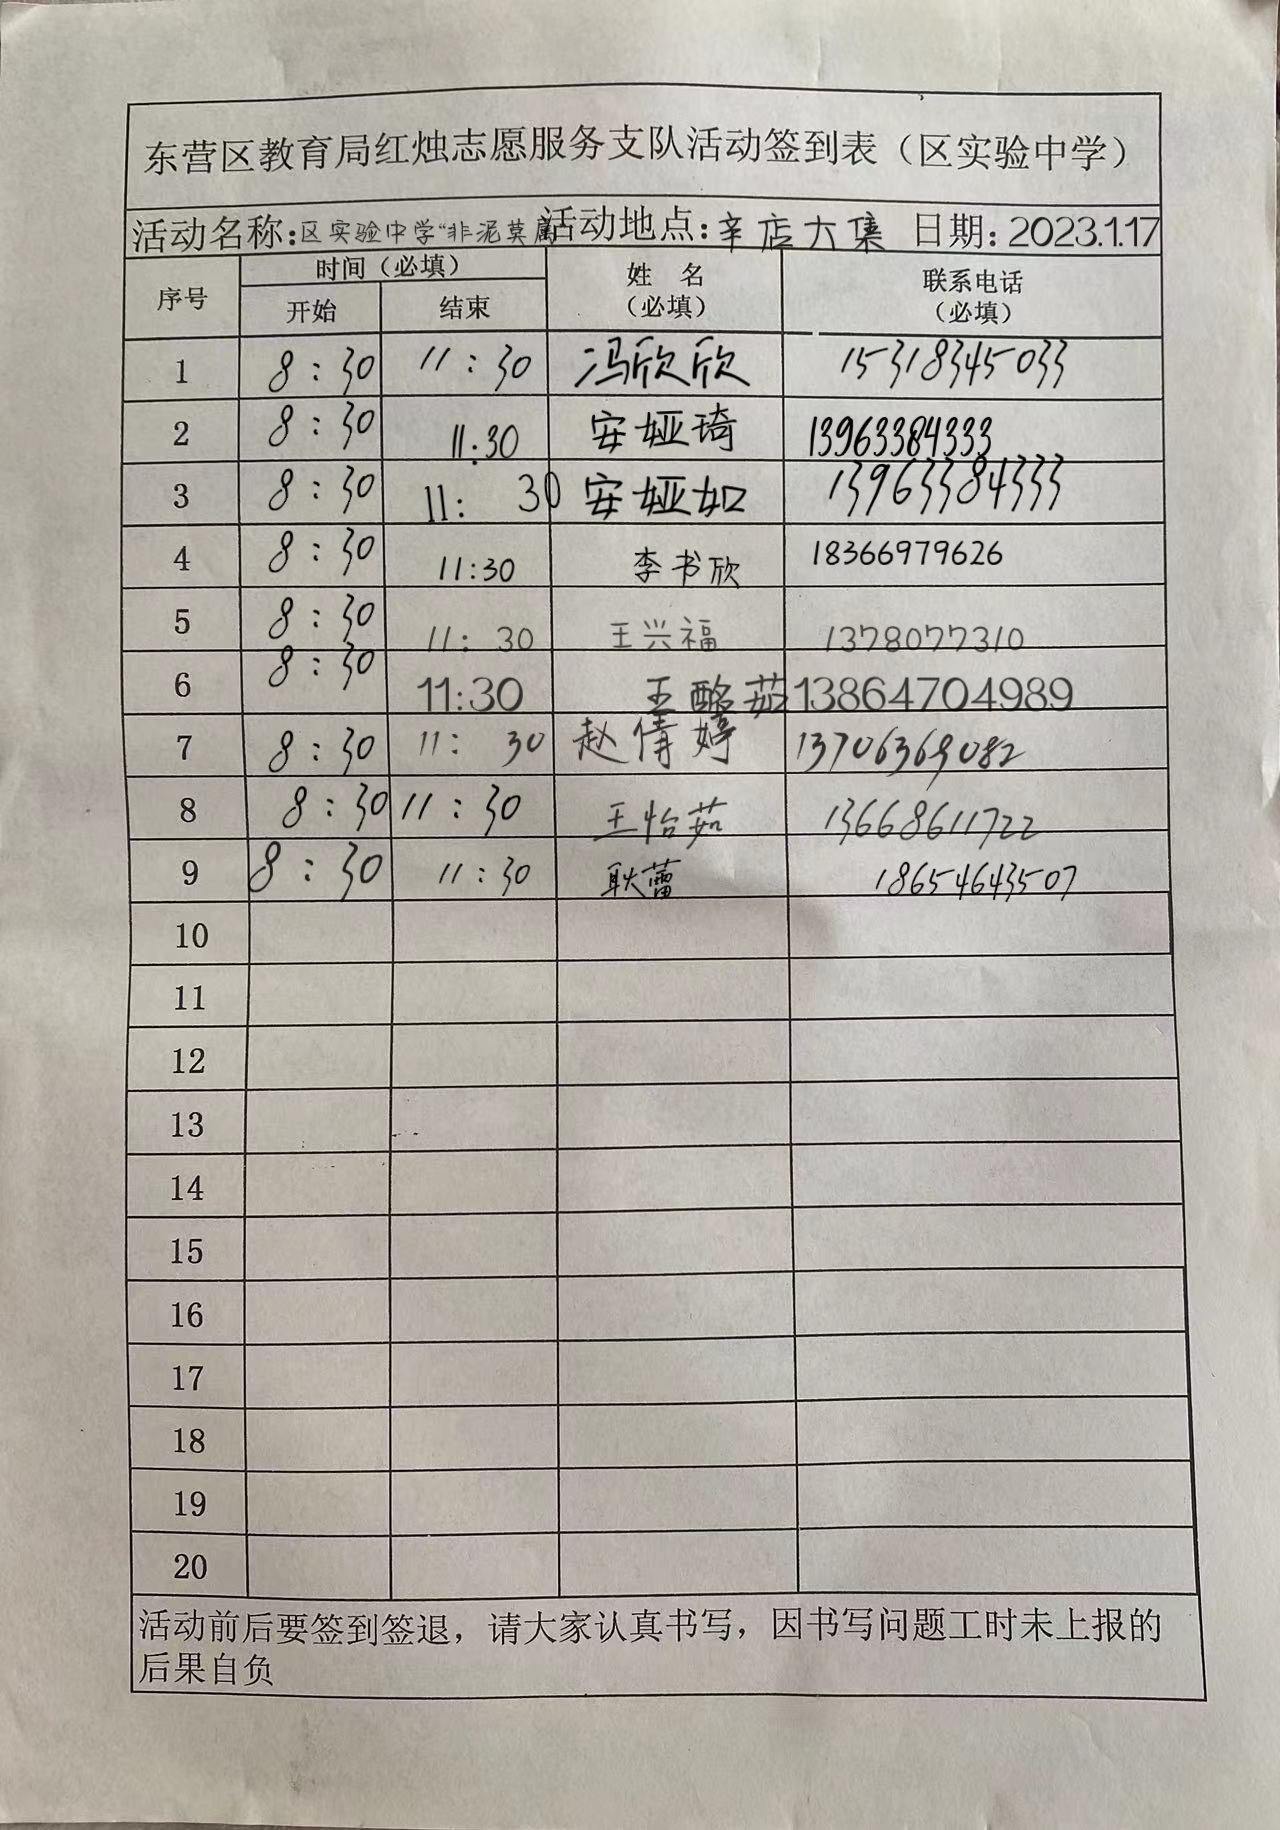 东营区教育局红烛志愿服务支队活动签到表（区实验中学）
活动名称:区实验中学"非泥莫属 活动地点:辛店大集 日期:2023.1.17
序号 时间（必填） 姓 名 联系电话
开始 结束 （必填） （必填）
1 8:30 11:30 冯欣欣 15318345033
2 8:30 11:30 安娅琦 13963384333
3 8:30 11:30 安娅如 13963384333
4 8:30 11:30 李书欣 18366979626
5 8:30 11:30 王兴福 1378077310
6 8:30 11:30 王 茹 13864704989
7 8:30 11:30 赵倩婷 13706369082
8 8:30 11:30 王怡茹 13668611722
9 8:30 11:30 耿蕾 18654643507
10
11
12
13
14
15
16
17
18
19
20
活动前后要签到签退，请大家认真书写，因书写问题工时未上报的
后果自负